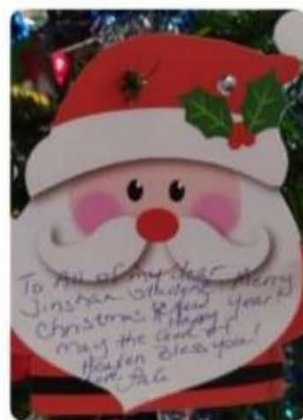 To All of my dear
Jinshan students Merry
Christmas & New Year!
Happy
may the God of
Heaven Bless you!